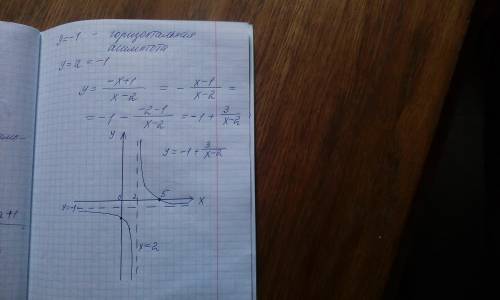 y=-1 - горизонтальная
асимптота
y=2=-1
y = \frac{-x+1}{x-2} = - \frac{x-1}{x-2} =
= -1 - \frac{-2-1}{x-2} = -1 + \frac{3}{x-2}
y
y = -1 + \frac{3}{x-2}
0 2 5 x
y=-1
x=2